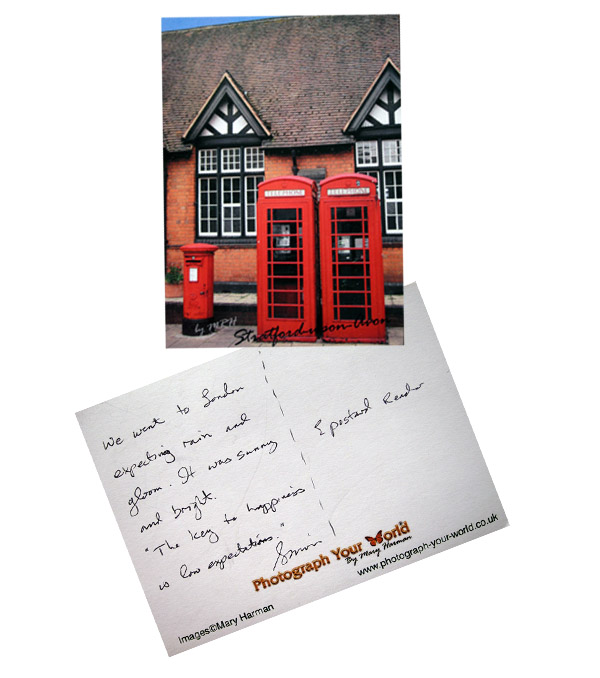 TELEPHONE TELEPHONE
by MRH
Stratford-upon-Avon
We went to London
expecting rain and
gloom. It was sunny
and bright.
"The key to happiness
is low expectations."
Epostcard Reader
Photograph Your World
By Mary Harman
www.photograph-your-world.co.uk
Images©Mary Harman